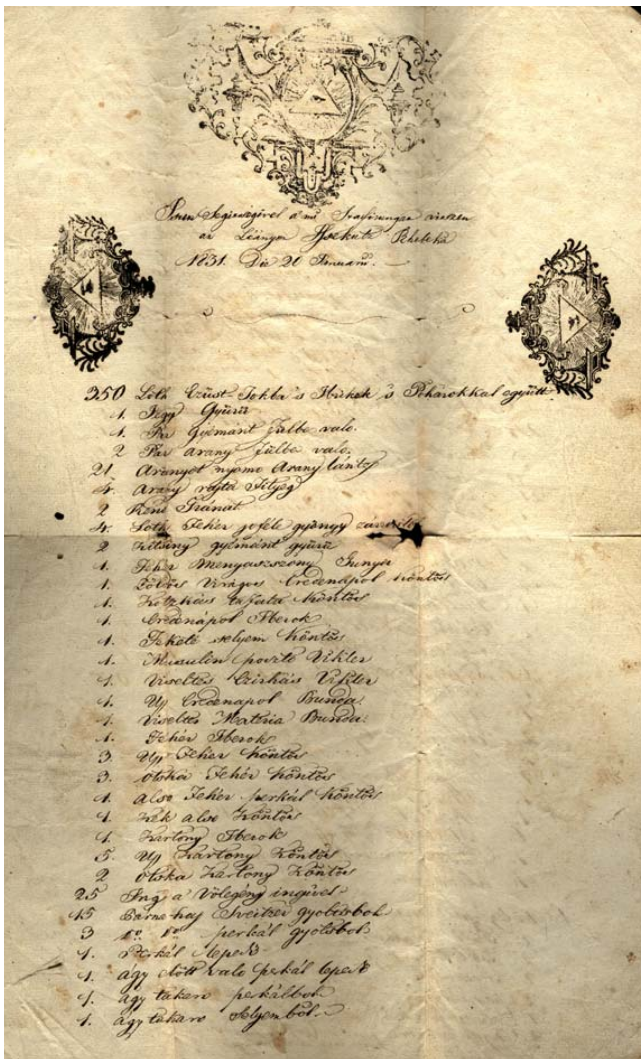 Isten Segicsigivel a mi
az Leányom Fekete Rebeka
1831. Die 20 Januarii.
350 Loth Ezüst Tokba s Pohárokkal együtt
1. Jegy Gyürü
1. Pár Gyémánt fülbe valo.
2 Pár arany fülbe valo.
21. Aranyot nyomo Arany lántz
4. Arany rajta fityeg
2 Gránát
4. Loth Fehér jo féle gyöngy
2 Kitsiny gyémánt gyürü
1. Fehér Menyasszony Gunya
1. Zöldes Virágos Credenapol Köntös
1. Kotzkás tafata Köntös
1. Credenápol Iberok
1. Fekete selyem Köntös
1. Musulin Vikler
1. Viseltes Vikler
1. Uj Credenapol Bunda
1. Viseltes Materia Bunda
1. Fehér Iberok
3 Uj Fehér Köntös
3. otska Fehér Köntös
1. also Fehér perkál Köntös
1. Kék also Köntös
1. Kartony Iberok
5. Uj Kartony Köntös
2 otska Kartony Köntös
25 Ing a Völegény ingivel
15 Sveitzer gyoltsbol
3 perkál gyoltsbol
1. Perkál lepedö
1. ágy elött valo perkál lepedö
1. ágy takaro perkálbol
1. ágy takaro Selyemböl.